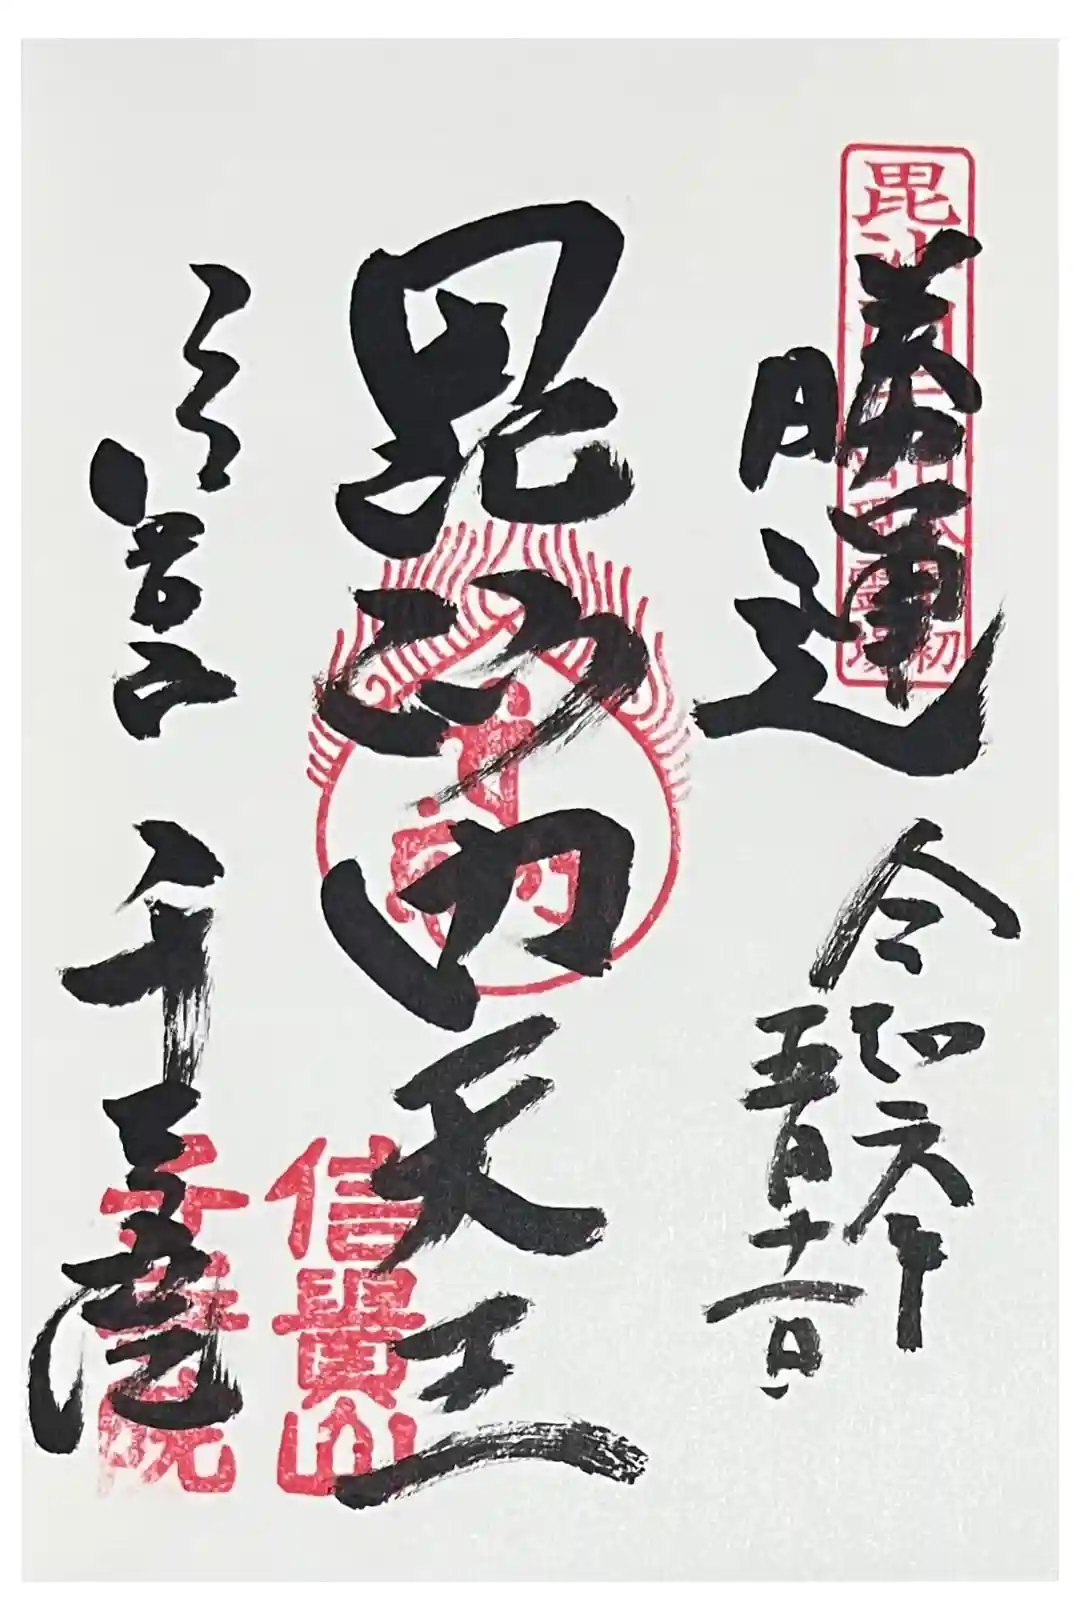 毘沙門天王
勝運
令和六年
五月十一日
毘沙門天王
信貴山
信貴山
千手院